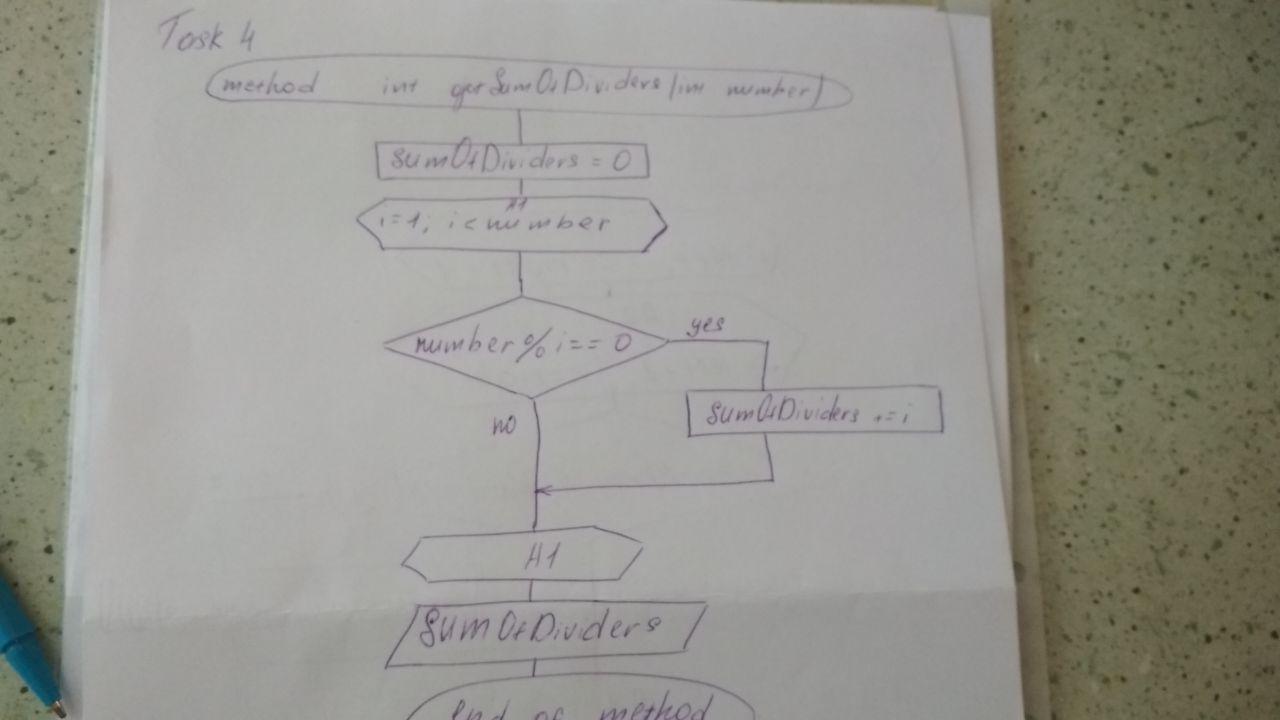 Task 4
method int getSumOfDividers (int number)
sumOfDividers = 0
A1
i=1; i < number
number % i == 0
yes
sumOfDividers += i
no
A1
SumOfDividers
End of method